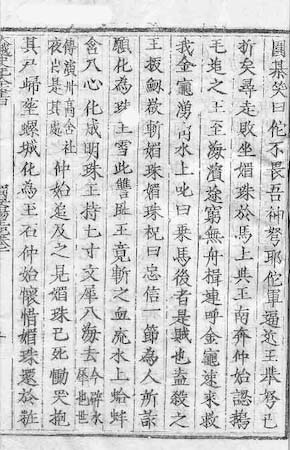 圍棊笑曰佗不畏吾神弩耶佗軍逼近王舉弩已
折矣尋走敗坐媚珠於馬上共王南奔仲始認鵝
毛追之王至海濱途窮無舟楫連呼金龜速來救
我金龜湧出水上叱曰乗馬後者是賊也盍殺之
王拔劔欲斬媚珠媚珠祝曰忠信一節為人所詐
願化為珠玉雪此讐恥王竟斬之血流水上蛤蚌
含入心化成明珠王持七寸文犀入海去今辟水犀也世
傳演州高舍社夜山是其處仲始追及之見媚珠已死慟哭抱
其尸歸塟螺城化為玉石仲始懷惜媚珠還於粧